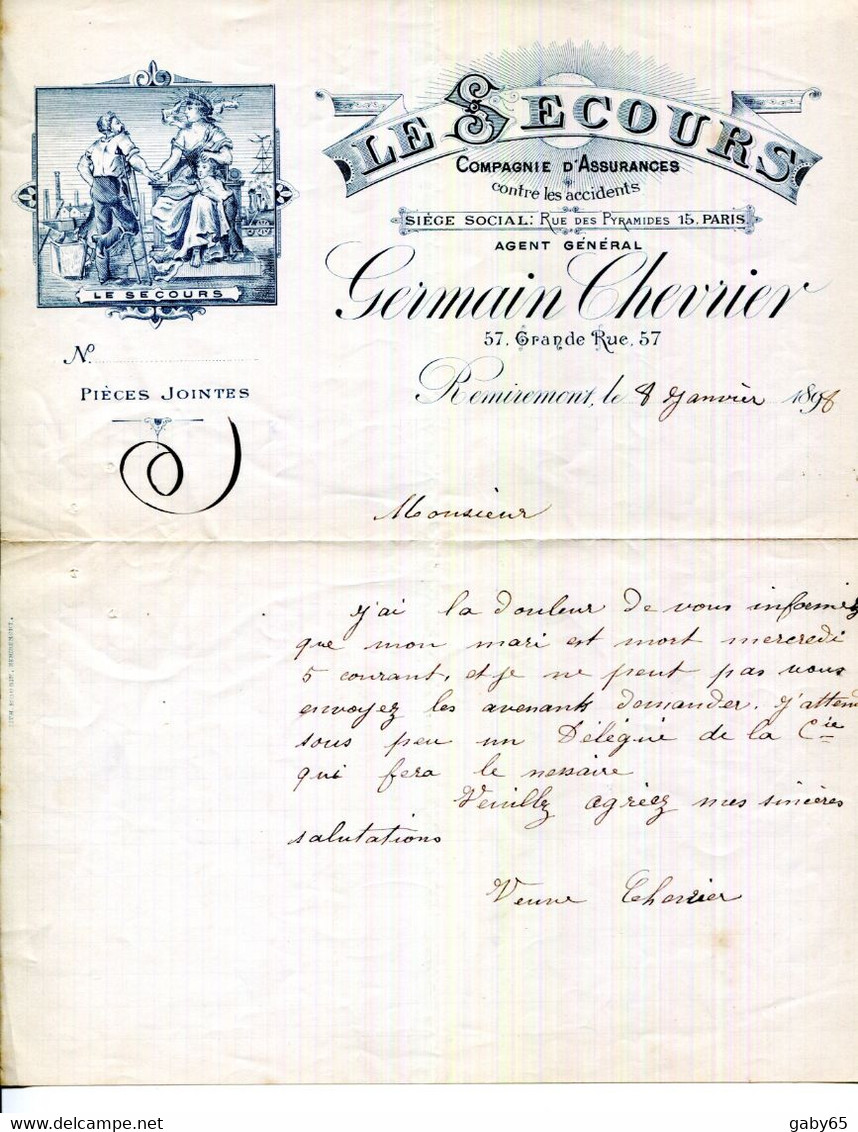 LE SECOURS
COMPAGNIE D'ASSURANCES
contre les accidents
SIÉGE SOCIAL: RUE DES PYRAMIDES 15, PARIS
AGENT GÉNÉRAL
Germain Chevrier
57, Grande Rue, 57
Remiremont, le 8 Janvier 1898
LE SECOURS
N.
PIÈCES JOINTES
Monsieur
J'ai la douleur de vous informez
que mon mari est mort mercredi
5 courant, et je ne peut pas vous
envoyez les avenants demander. J'attend
sous peu un Délégué de la Cie
qui fera le nessaire
Veuillz agréez mes sincères
salutations
Veuve Chevrier
gaby65